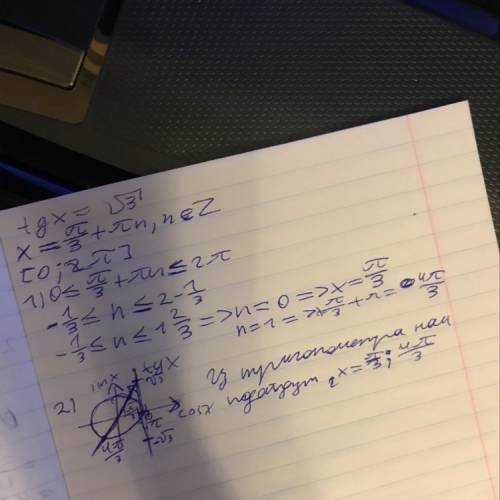 tgx = √3
x = π/3 + πn, n∈Z
[0; 2π]
1) 0 ≤ π/3 + πn ≤ 2π
-1/3 ≤ n ≤ 2-1/3
-1/3 ≤ n ≤ 1 2/3 => n=0 => x = π/3
n=1 => π/3 + π = 4π/3
2) sinx tgx √3 cosx -√3 4π/3
Из тригонометра нам
подходит x = π/3; 4π/3